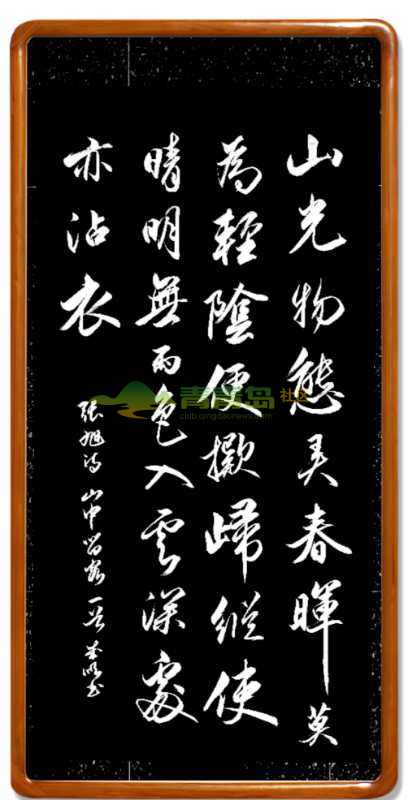 山光物態弄春暉莫
為輕陰便擬歸縱使
晴明無雨色入雲深處
亦沾衣
張旭詩山中留客一首書
青青岛社区
club.qingdaonews.com